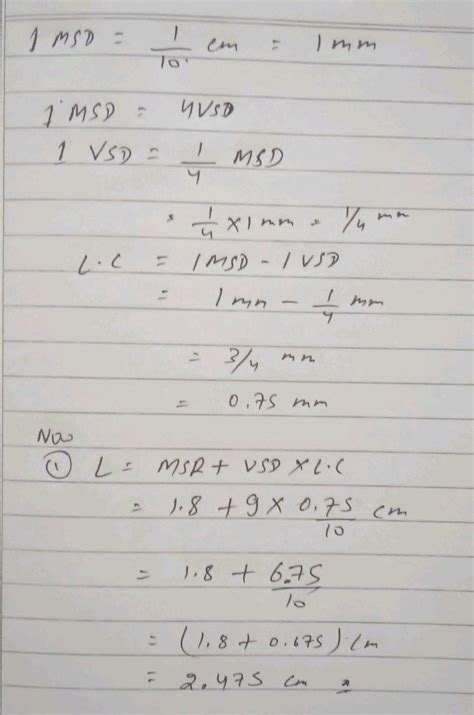 1 MSD = 1/10 cm = 1 mm
1 MSD = 4VSD
1 VSD = 1/4 MSD
= 1/4 × 1 mm = 1/4 mm
L.C = 1MSD - 1VSD
= 1 mm - 1/4 mm
= 3/4 mm
= 0.75 mm
Now
① L = MSR + VSD × L.C
= 1.8 + 9 × 0.75/10 cm
= 1.8 + 6.75/10
= (1.8 + 0.675) cm
= 2.475 cm